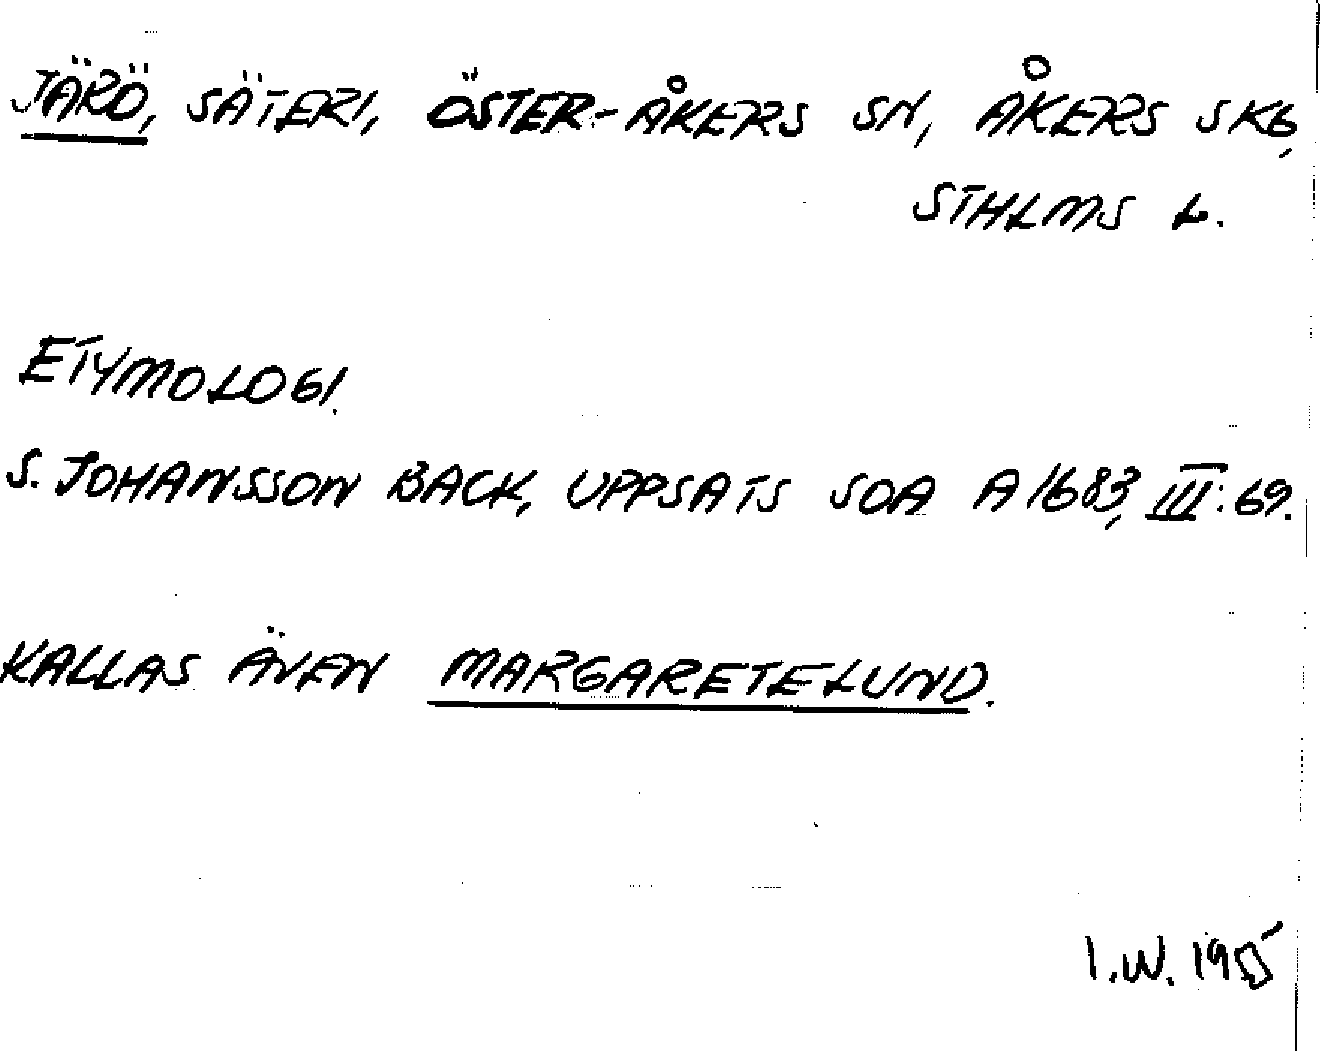 JÄRÖ, SÄTERI, ÖSTER-ÅKERS SN, ÅKERS SKG,
STHLMS L.
ETYMOLOGI.
S. JOHANSSON BACK, UPPSATS SOA A 1683, III:69.
KALLAS ÄVEN MARGARETELUND.
I.W.